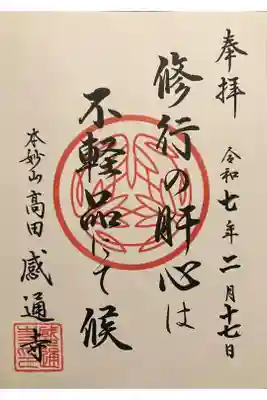 奉拝
令和七年二月十七日
修行の肝心は
不軽品にて候
本妙山高田感通寺